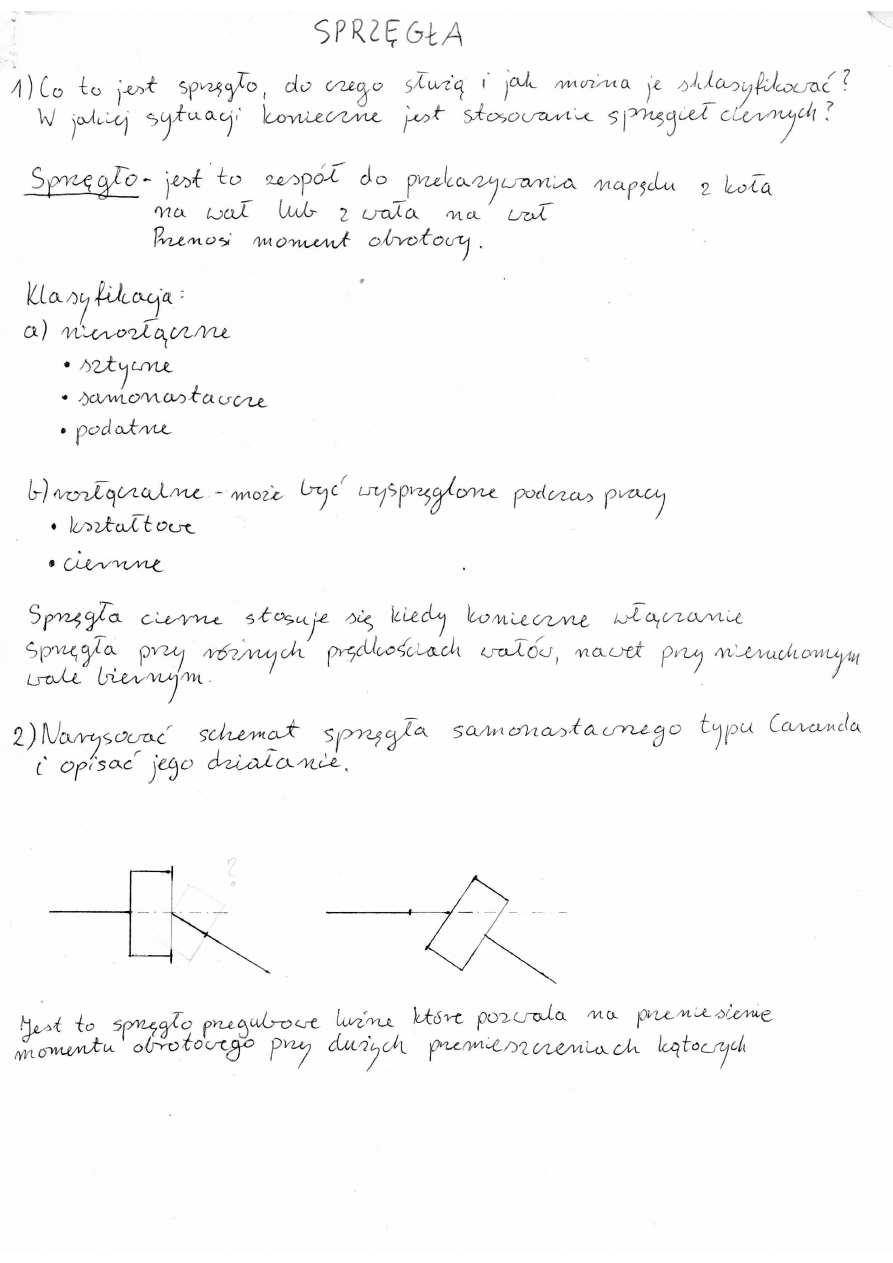 SPRZĘGŁA
1) Co to jest sprzęgło, do czego służą i jak można je sklasyfikować?
W jakiej sytuacji konieczne jest stosowanie sprzęgieł ciernych?
Sprzęgło - jest to zespół do przekazywania napędu z koła
na wał lub z wała na wał
Przenosi moment obrotowy.
Klasyfikacja:
a) nierozłączne
• sztywne
• samonastawcze
• podatne
b) rozłączalne - może być wysprzęglone podczas pracy
• kształtowe
• cierne
Sprzęgła cierne stosuje się kiedy konieczne włączanie
sprzęgła przy różnych prędkościach wałów, nawet przy nieruchomym
wale biernym.
2) Narysować schemat sprzęgła samonastawnego typu Caranda
i opisać jego działanie.
?
Jest to sprzęgło przegubowe luźne które pozwala na przeniesienie
momentu obrotowego przy dużych przemieszczeniach kątowych